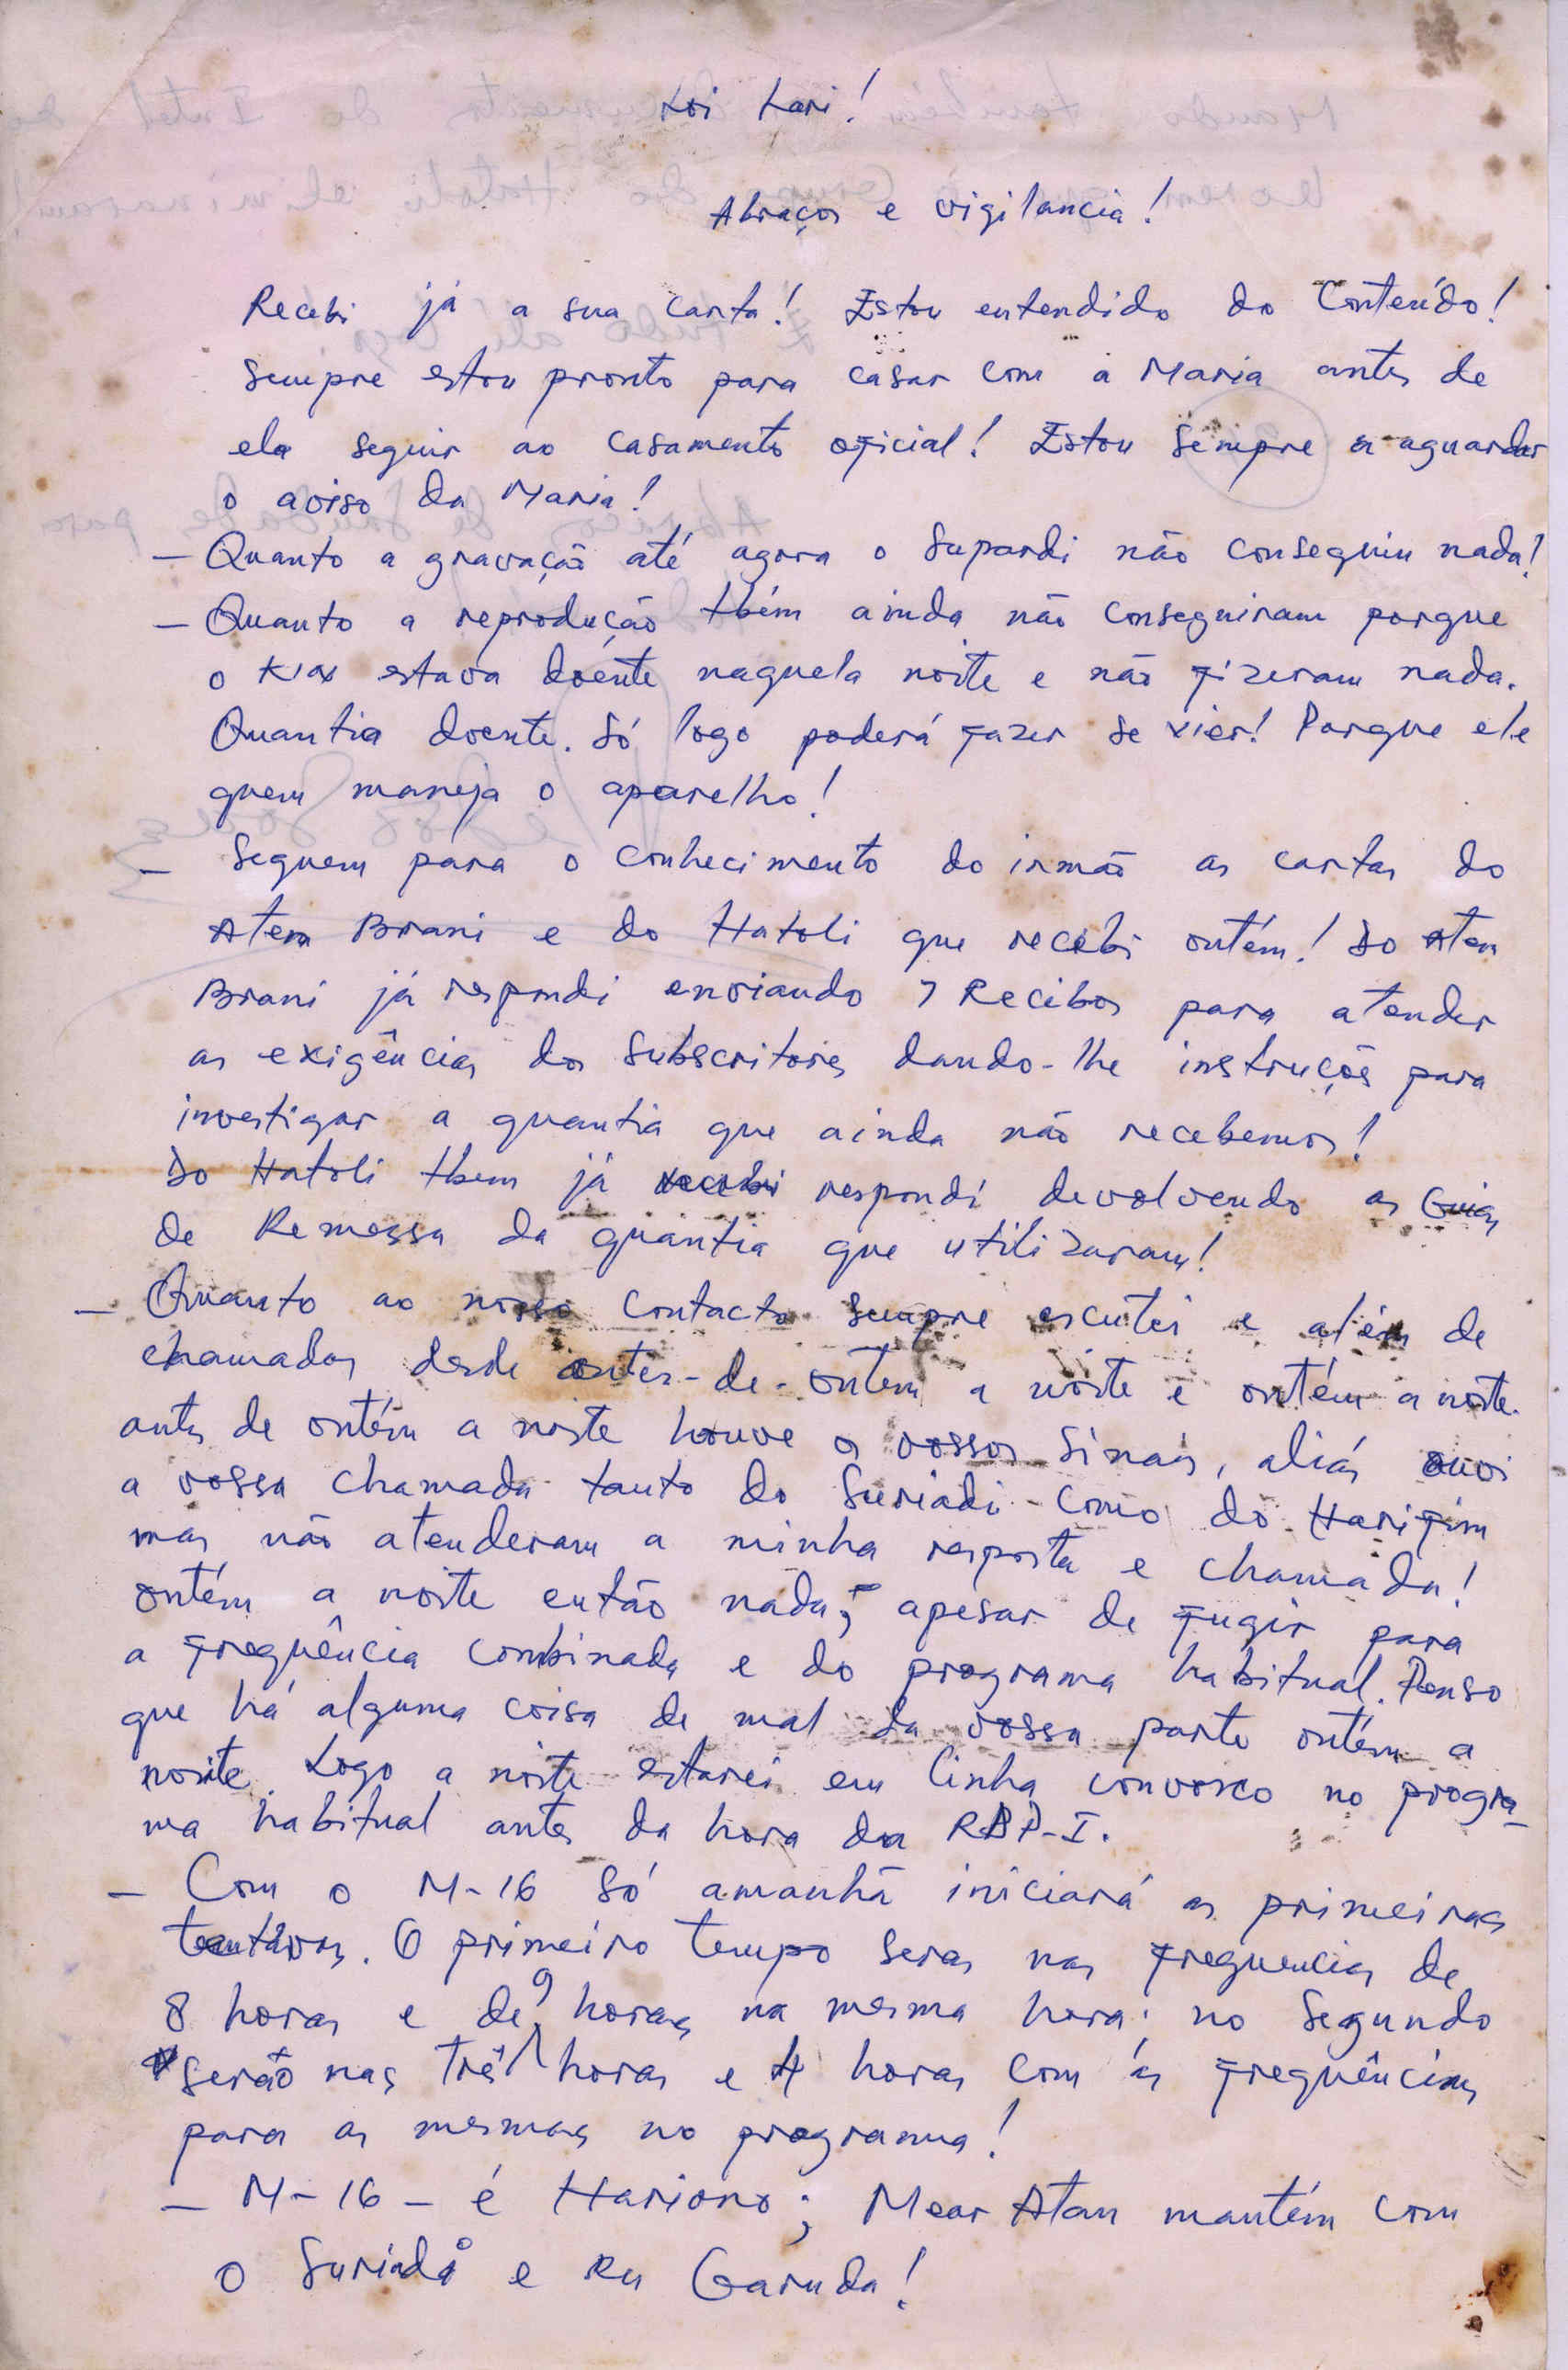 Loi Lari!
Abraços e vigilancia!
Recebi já a sua carta! Estou entendido do Conteúdo!
Sempre estou pronto para casar com a Maria antes de
ela seguir ao casamento oficial! Estou sempre a aguardar
o aviso da Maria!
— Quanto a gravação até agora o Supardi não conseguiu nada!
— Quanto a reprodução tbém ainda não conseguiram porque
o estava doente naquela noite e não fizeram nada.
Quantia doente. Só logo poderá fazer se vier! Porque ele
quem maneja o aparelho!
— Seguem para o conhecimento do irmão as cartas do
Aten Brani e do Hatoli que recebi ontém! Do Aten
Brani já respondi enviando 7 Recibos para atender
as exigências dos subscritores dando-lhe instruções para
investigar a quantia que ainda não recebemos!
Do Hatoli tbem já recebi respondi devolvendo as Guias
de Remessa da quantia que utilizaram!
— Quanto ao nosso contacto sempre escutei e além de
chamadas desde antes-de-ontem a noite e ontém a noite.
antes de ontém a noite houve os vossos sinais, aliás ouvi
a vossa chamada tanto do Suriadi como do Harifim
mas não atenderam a minha resposta e chamada!
ontém a noite então nada; apesar de fugir para
a freqüência combinada e do programa habitual. Penso
que há alguma coisa de mal da vossa parte ontém a
noite. Logo a noite estarei em linha convosco no progra-
ma habitual antes da hora da RBP-I.
— Com o M-16 só amanhã iniciará as primeiras
tentativas. O primeiro tempo seras nas frequencias de
8 horas e de 9 horas na mesma hora; no segundo
serão nas três horas e 4 horas com ás freqüências
para as mesmas no programa!
— M-16 - é Hariono; Mear Atan mantém com
o Suriadi e Ru Garuda!